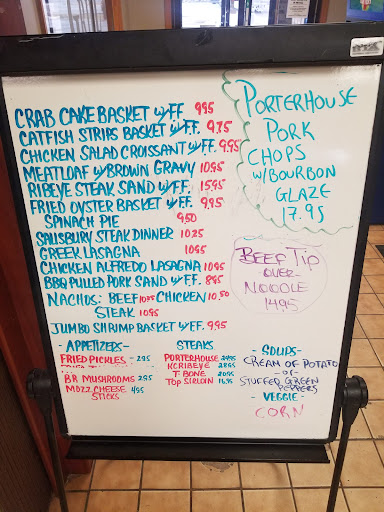 CRAB CAKE BASKET W/FF 9.95
CATFISH STRIPS BASKET W/FF 9.75
CHICKEN SALAD CROISSANT W/FF 9.95
MEATLOAF W/BROWN GRAVY 10.95
RIBEYE STEAK SAND W/FF 15.95
FRIED OYSTER BASKET W/FF 9.95
SPINACH PIE 9.50
SALISBURY STEAK DINNER 10.25
GREEK LASAGNA 10.95
CHICKEN ALFREDO LASAGNA 10.95
BBQ PULLED PORK SAND W/FF 8.95
NACHOS: BEEF 10.25 CHICKEN 10.50
STEAK 10.95
JUMBO SHRIMP BASKET W/FF 9.95
PORTERHOUSE
PORK
CHOPS
W/BOURBON
GLAZE
17.95
BEEF TIP
-OVER-
NOODLE
14.95
- APPETIZERS -
FRIED PICKLES - 2.95
BR MUSHROOMS - 2.95
MOZZ CHEESE 4.95
STICKS
STEAKS
PORTERHOUSE
KC RIBEYE
T-BONE
TOP SIRLOIN 16.95
- SOUPS -
CREAM OF POTATO
-or-
STUFFED GREEN
PEPPERS
- VEGGIE -
CORN